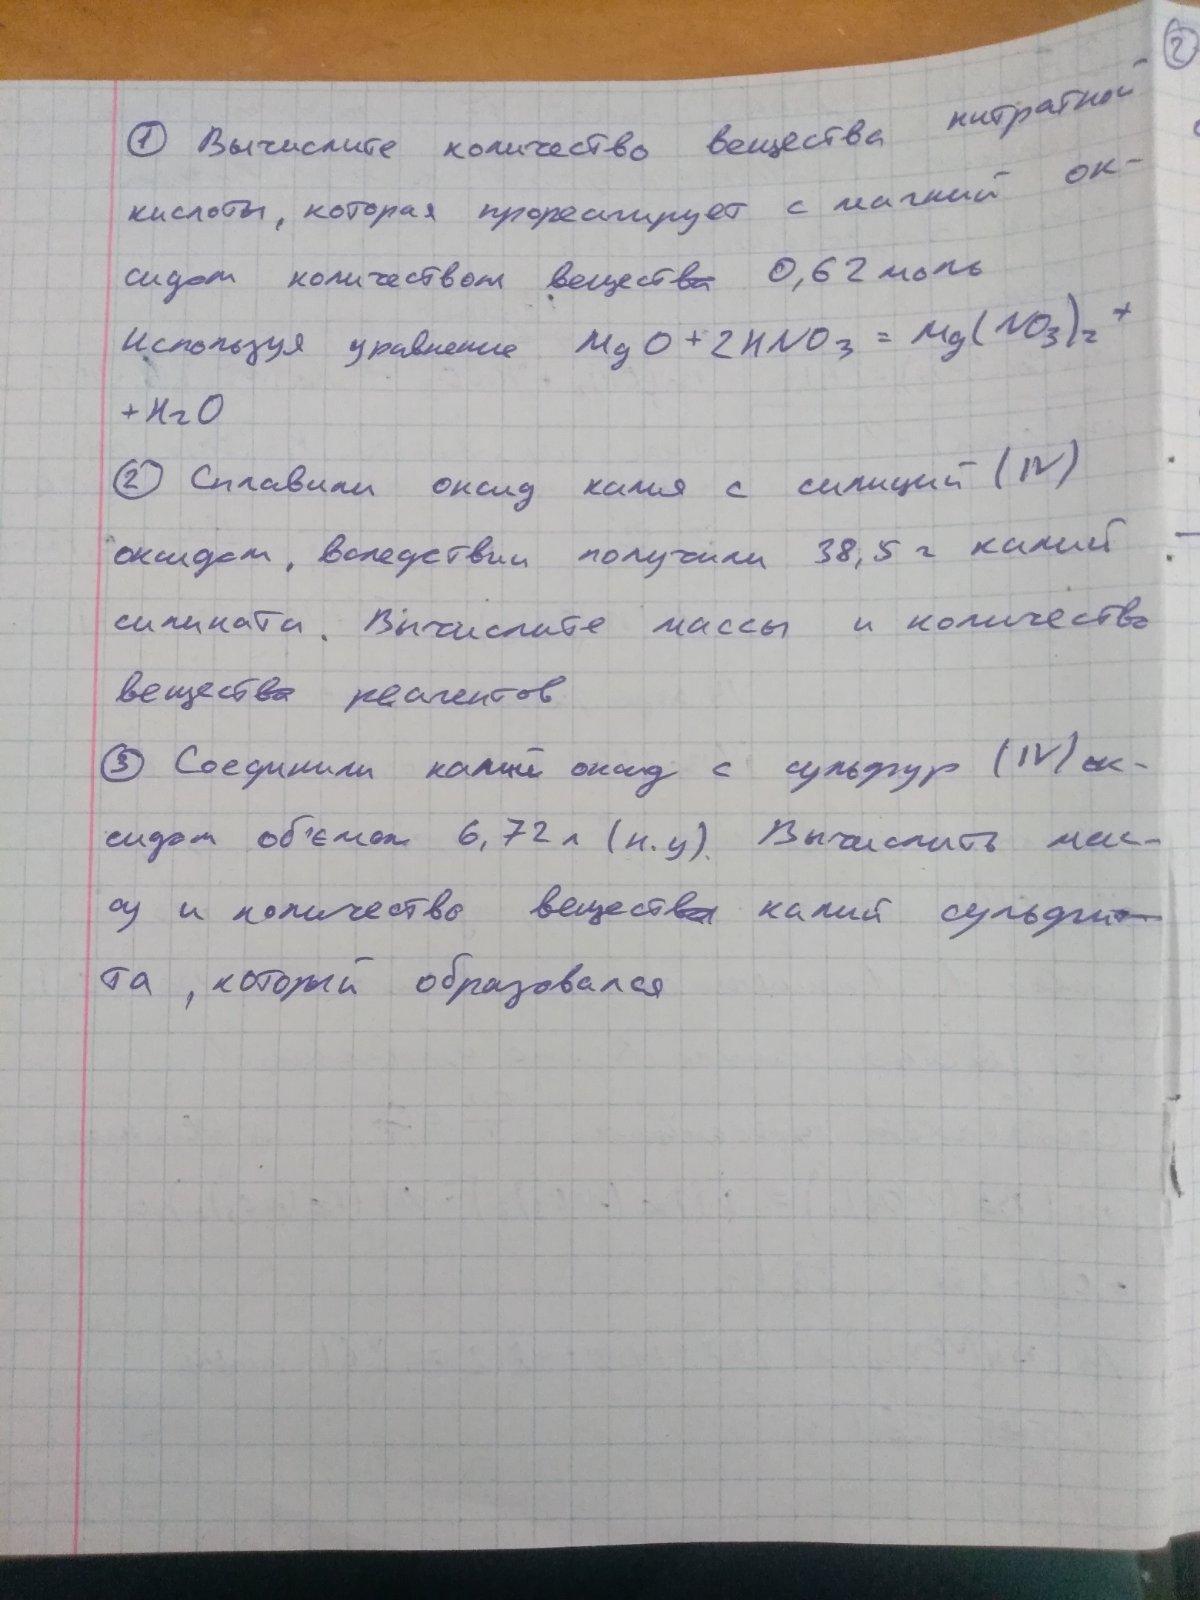 ① Вычислите количество вещества нитратной
кислоты, которая прореагирует с магний ок-
сидом количеством вещества 0,62 моль
Используя уравнение MgO + 2HNO3 = Mg(NO3)2 +
+ H2O
② Сплавили оксид калия с силиций (IV)
оксидом, вследствии получили 38,5 г калий
силиката. Вычислите массы и количество
вещества реагентов
③ Соединили калий оксид с сульфур (IV) ок-
сидом об'ємом 6,72 л (н.у). Вычислить мас-
су и количество вещества калий сульфи-
та, который образовался
②